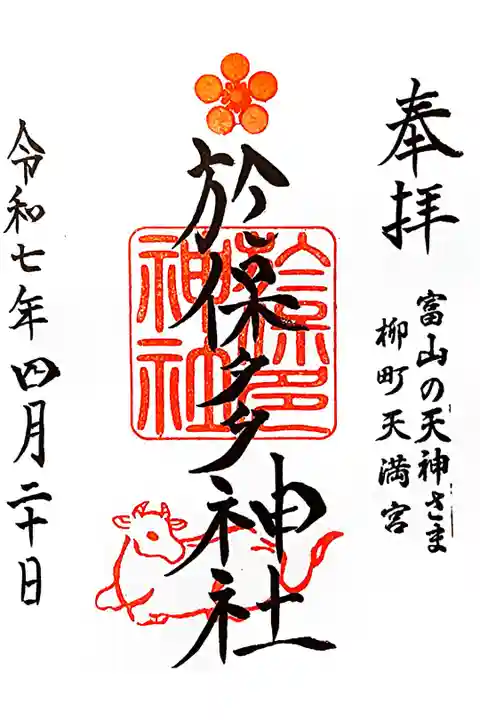 奉拝
富山の天神さま
柳町天満宮
於保多神社
於保多神社
令和七年四月二十日